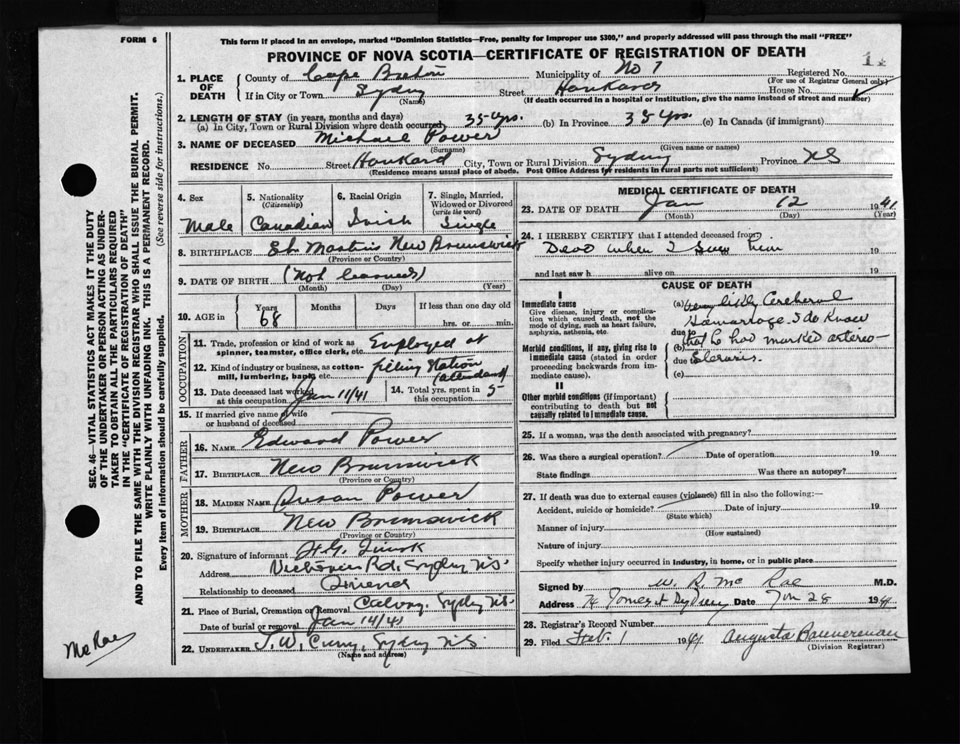 FORM 6
This form if placed in an envelope, marked "Dominion Statistics—Free, penalty for improper use $300," and properly addressed will pass through the mail "FREE"
PROVINCE OF NOVA SCOTIA—CERTIFICATE OF REGISTRATION OF DEATH
1. PLACE OF DEATH
County of Cape Breton Municipality of No 7 Registered No.
(For use of Registrar General only)
If in City or Town Sydney Street House No.
(Name) (If death occurred in a hospital or institution, give the name instead of street and number)
2. LENGTH OF STAY (in years, months and days)
(a) In City, Town or Rural Division where death occurred 35 yrs. (b) In Province 35 yrs (c) In Canada (if immigrant)
3. NAME OF DECEASED Michael Power
(Surname) (Given name or names)
RESIDENCE No. Street City, Town or Rural Division Sydney Province NS
(Residence means usual place of abode. Post Office Address for residents in rural parts not sufficient)
4. Sex
Male
5. Nationality
(Citizenship)
Canadian
6. Racial Origin
Irish
7. Single, Married, Widowed or Divorced
(write the word)
Single
8. BIRTHPLACE St. Martins New Brunswick
(Province or Country)
9. DATE OF BIRTH (Not learned)
(Month) (Day) (Year)
10. AGE in
Years Months Days If less than one day old
68 hrs. or min.
OCCUPATION
11. Trade, profession or kind of work as spinner, teamster, office clerk, etc. Employed at
12. Kind of industry or business, as cotton-mill, lumbering, bank, etc. filling Station (attendant)
13. Date deceased last worked at this occupation Jan 11/41
14. Total yrs. spent in 5
15. If married give name of wife or husband of deceased
FATHER
16. NAME Edward Power
17. BIRTHPLACE New Brunswick
(Province or Country)
MOTHER
18. MAIDEN NAME Susan Power
19. BIRTHPLACE New Brunswick
(Province or Country)
20. Signature of informant H.G.
Address Rd. Sydney NS.
Relationship to deceased
21. Place of Burial, Cremation or Removal Calvary, Sydney NS.
Date of burial or removal Jan 14/41
22. UNDERTAKER T. W. Curry, Sydney NS
(Name and address)
MEDICAL CERTIFICATE OF DEATH
23. DATE OF DEATH Jan 12 1941
(Month) (Day) (Year)
24. I HEREBY CERTIFY that I attended deceased from
Dead when I Saw him 19
and last saw h alive on 19
CAUSE OF DEATH
I
Immediate cause
Give disease, injury or complication which caused death, not the mode of dying, such as heart failure, asphyxia, asthenia, etc.
Morbid conditions, if any, giving rise to immediate cause (stated in order proceeding backwards from immediate cause).
II
Other morbid conditions (if important) contributing to death but not causally related to immediate cause.
(a) Very likely Cerebral
Hemorrhage. I do Know
due to
(b) that he had marked arterio-
due to Sclerosis.
(c)
25. If a woman, was the death associated with pregnancy?
26. Was there a surgical operation? Date of operation 19
State findings Was there an autopsy?
27. If death was due to external causes (violence) fill in also the following:—
Accident, suicide or homicide? Date of injury 19
(State which)
Manner of injury
(How sustained)
Nature of injury
Specify whether injury occurred in industry, in home, or in public place
Signed by W. R. Mc Rae M.D.
Address 74 Sydney Date Jan 28 1941
28. Registrar's Record Number
29. Filed Feb. 1 1941 Augusta Bannerman
(Division Registrar)
SEC. 46—VITAL STATISTICS ACT MAKES IT THE DUTY
OF THE UNDERTAKER OR PERSON ACTING AS UNDER-
TAKER TO OBTAIN ALL THE PARTICULARS REQUIRED
IN THE "CERTIFICATE OF REGISTRATION OF DEATH"
AND TO FILE THE SAME WITH THE DIVISION REGISTRAR WHO SHALL ISSUE THE BURIAL PERMIT.
WRITE PLAINLY WITH UNFADING INK. THIS IS A PERMANENT RECORD.
Every item of information should be carefully supplied. (See reverse side for instructions.)
McRae